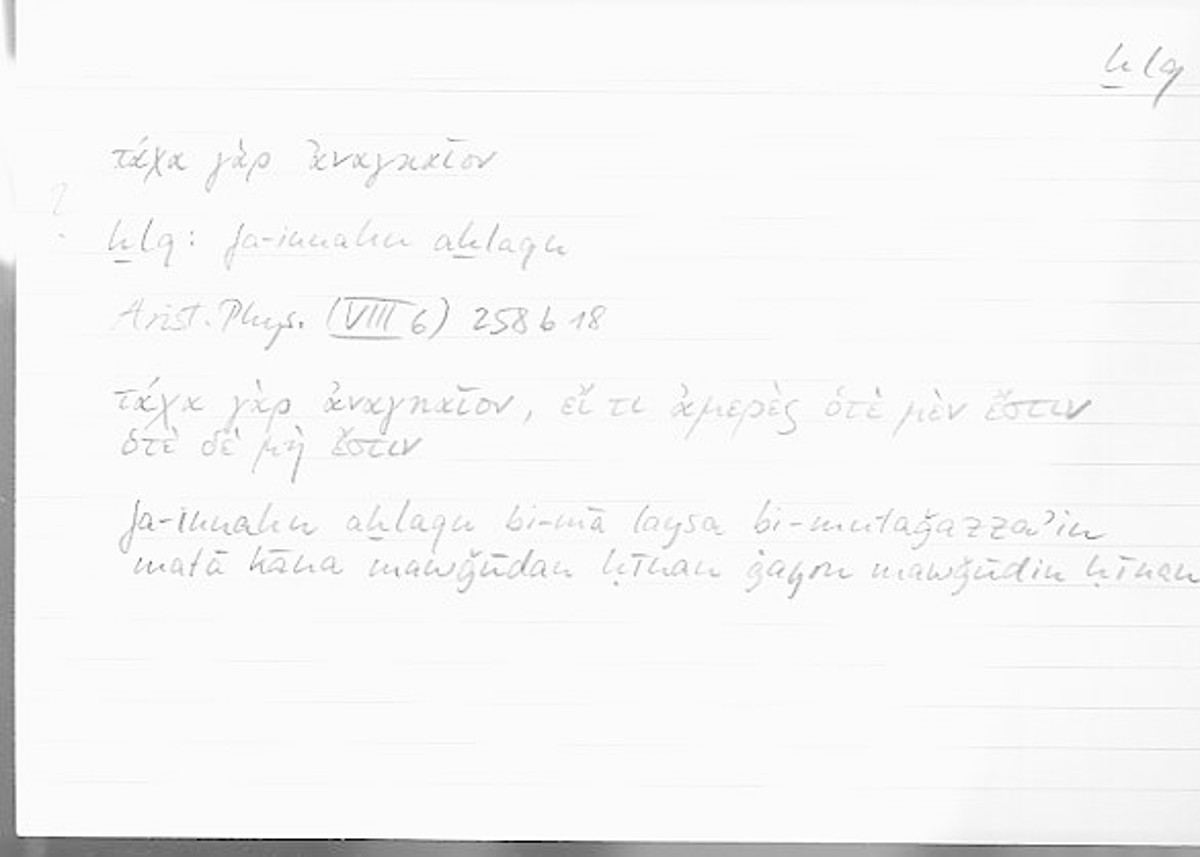 ḫlq
τάχα γὰρ ἀναγκαῖον
?
ḫlq: fa-innahu aḫlaqu
Arist. Phys. (VIII 6) 258 b 18
τάχα γὰρ ἀναγκαῖον, εἴ τι ἀμερὲς ὁτὲ μὲν ἔστιν
ὁτὲ δὲ μὴ ἔστιν
fa-innahu aḫlaqu bi-mā laysa bi-mutaǧazzaʾin
matā kāna mawǧūdan ḥīnan ġayra mawǧūdin ḥīnan